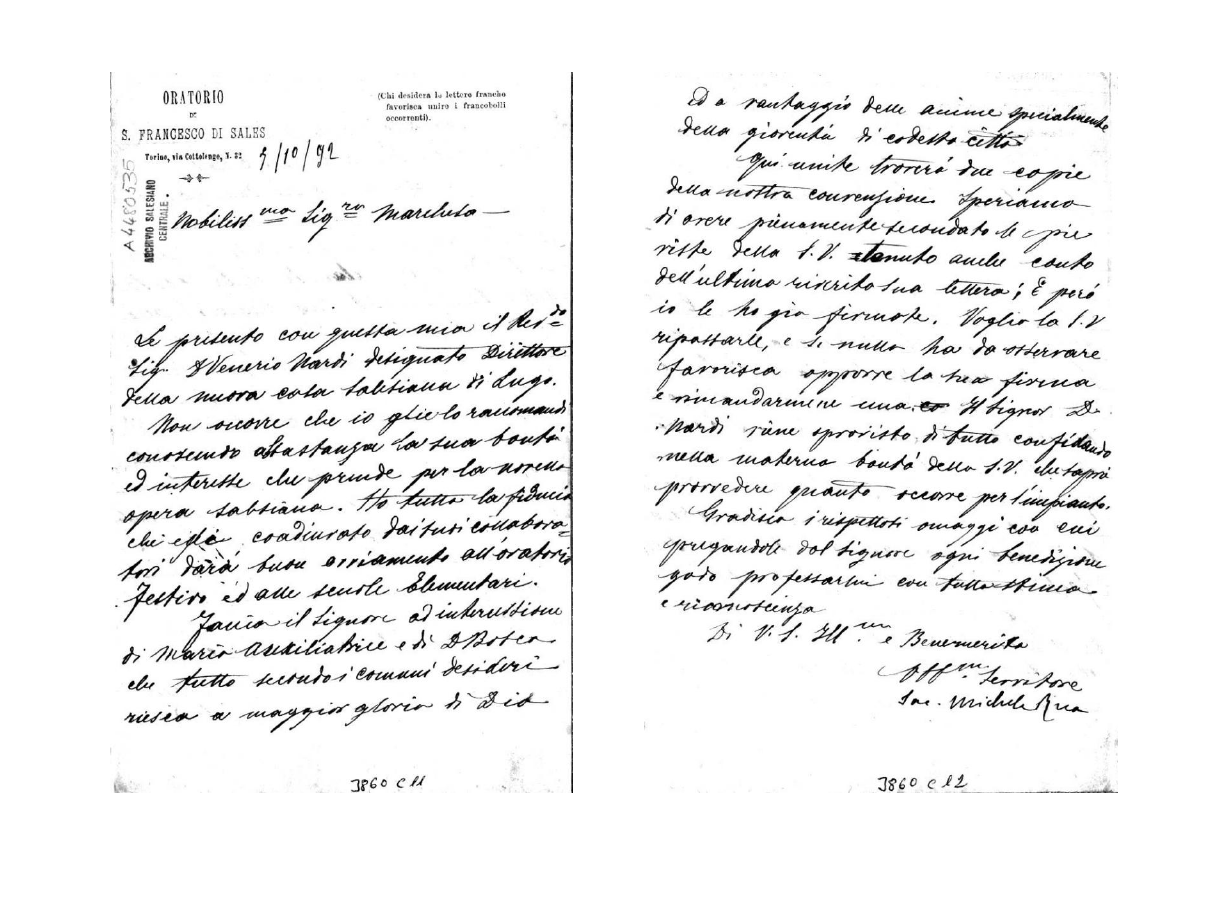 ORATORIO
DI
S. FRANCESCO DI SALES
Torino, via Cottolengo, N. 32
(Chi desidera le lettere franche
favorisca unire i francobolli
occorrenti).
5/10/92
A4480535
ARCHIVIO SALESIANO
CENTRALE.
Nobiliss ma Sig ra Marchesa
Le presento con questa mia il Rev do
Sig. D Venerio Nardi designato Direttore
della nuova casa salesiana di Lugo.
Non occorre che io glielo raccomandi
conoscendo abbastanza la sua bontà
ed interesse che prende per la novella
opera salesiana. Ho tutta la fiducia
che egli coadiuvato dai suoi collabora-
tori darà buon avviamento all'oratorio
festivo ed alle scuole Elementari.
Faccia il Signore ad intercessione
di Maria Ausiliatrice e di D Bosco
che tutto secondo i comuni desideri
riesca a maggior gloria di Dio
J860 C 11
ed a vantaggio delle anime specialmente
della gioventù di codesta città
Qui unite troverà due copie
della nostra convenzione. Speriamo
di avere pienamente secondato le pie
viste della S. V. tenuto anche conto
dell'ultima riverita sua lettera; E però
io le ho già firmate. Voglia la S. V
ripassarle, e se nulla ha da osservare
favorisca apporre la sua firma
e rimandarmene una. Il Signor D.
Nardi viene sprovisto di tutto confidando
nella materna bontà della S. V. che saprà
provvedere quanto occorre per l'impianto.
Gradisca i rispettosi omaggi con cui
pregandole dal Signore ogni benedizione
godo professarmi con tutta stima
e riconoscenza
Di V. S. Ill ma e Benemerita
Aff mo Servitore
Sac. Michele Rua
J860 C 12